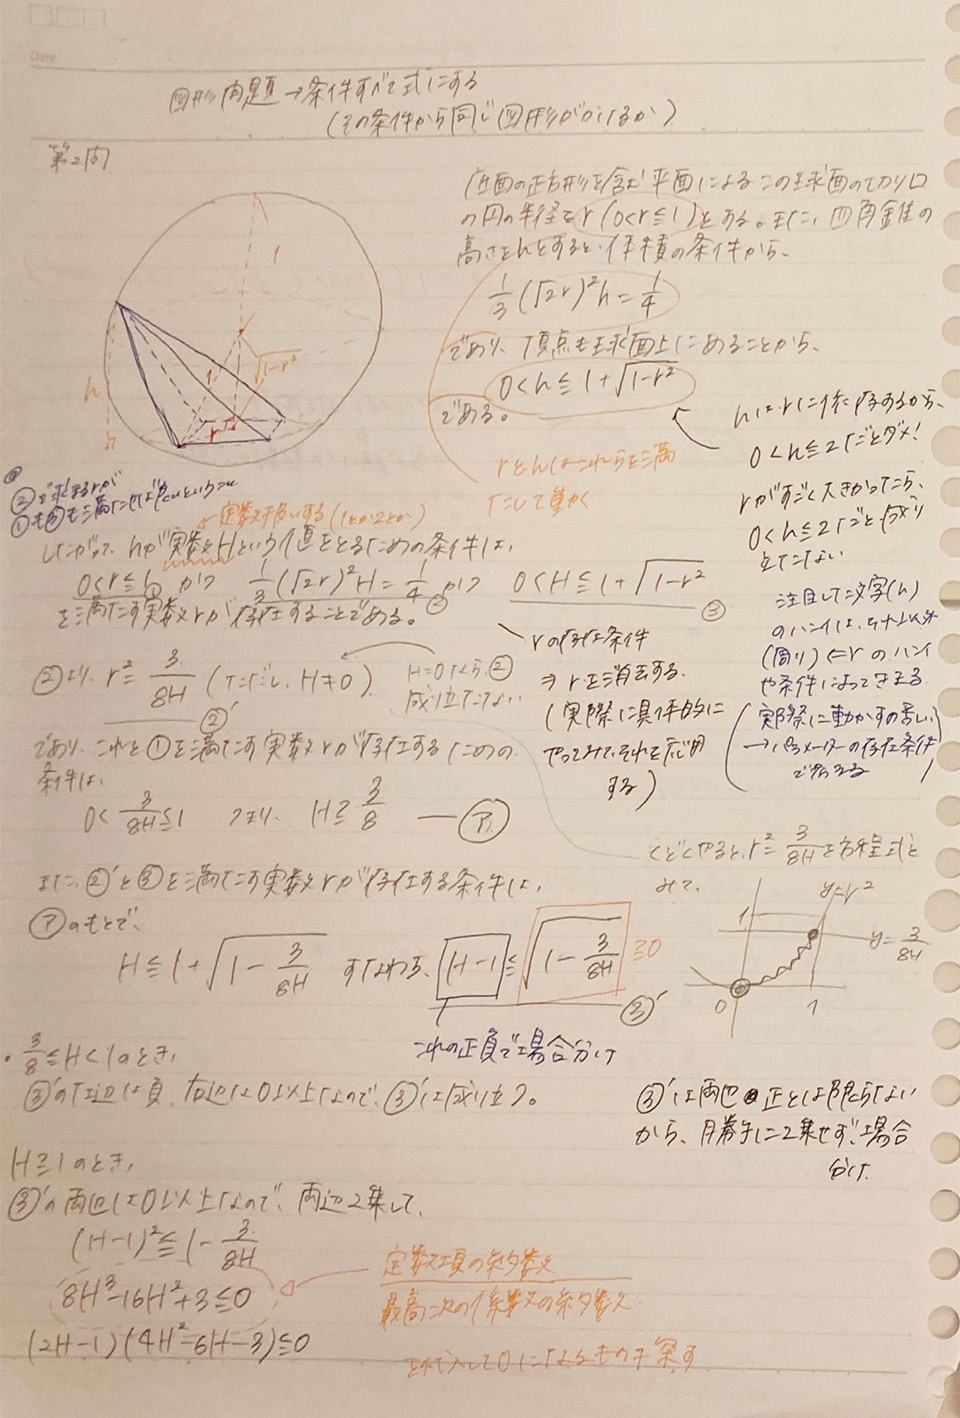 Date
図形問題→条件すべて式にする
(その条件から同じ図形がかけるか)
第2問
底面の正方形を含む平面によるこの球面の切り口
の円の半径をr(0<r≦1)とする。また、四角錐の
高さをhとすると、体積の条件から、
1/3(√2r)²h=1/4
であり、頂点も球面上にあることから、
0<h≦1+√(1-r²)
である。
hはrに依存するから、
0<h≦2だとダメ!
rとhはこれらを満
たして動く
rがすごく大きかったら、
0<h≦2だと成り
立たない
1
1
√(1-r²)
h
r
②で求まるrが
①も③も満たせばいいということ
定数扱いする(1とか2とか)
したがって、hが実数Hという値をとるための条件は、
0<r≦1 ① かつ 1/3(√2r)²H=1/4 ② かつ 0<H≦1+√(1-r²) ③
を満たす実数rが存在することである。
rの存在条件
⇒rを消去する。
(実際に具体的に
やってみて、それを応用
する)
注目した文字(h)
のハンイは、それ以外
(周り)←rのハンイ
や条件によってきまる
(実際に動かすの苦しい
→パラメーターの存在条件
で考える)
②より、r²=3/8H (ただし、H≠0) ②'
H=0なら、②
成り立たない
であり、これと①を満たす実数rが存在するための
条件は、
0<3/8H≦1 つまり、H≧3/8 —ア
くどくやると、r²=3/8Hを方程式と
みて、
y=r²
y=3/8H
1
0
1
また、②'と③を満たす実数rが存在する条件は、
アのもとで、
H≦1+√(1-3/8H) すなわち、H-1≦√(1-3/8H) ≧0
③'
これの正負で場合分け
・3/8≦H<1のとき、
③'の左辺は負、右辺は0以上なので、③'は成り立つ。
③'は両辺正とは限らない
から、勝手に2乗せず、場合
分け
H≧1のとき、
③'の両辺は0以上なので、両辺2乗して、
(H-1)²≦1-3/8H
8H³-16H²+3≦0
(2H-1)(4H²-6H-3)≦0
定数項の約数
最高次の係数の約数
を代入して0になるもの探す